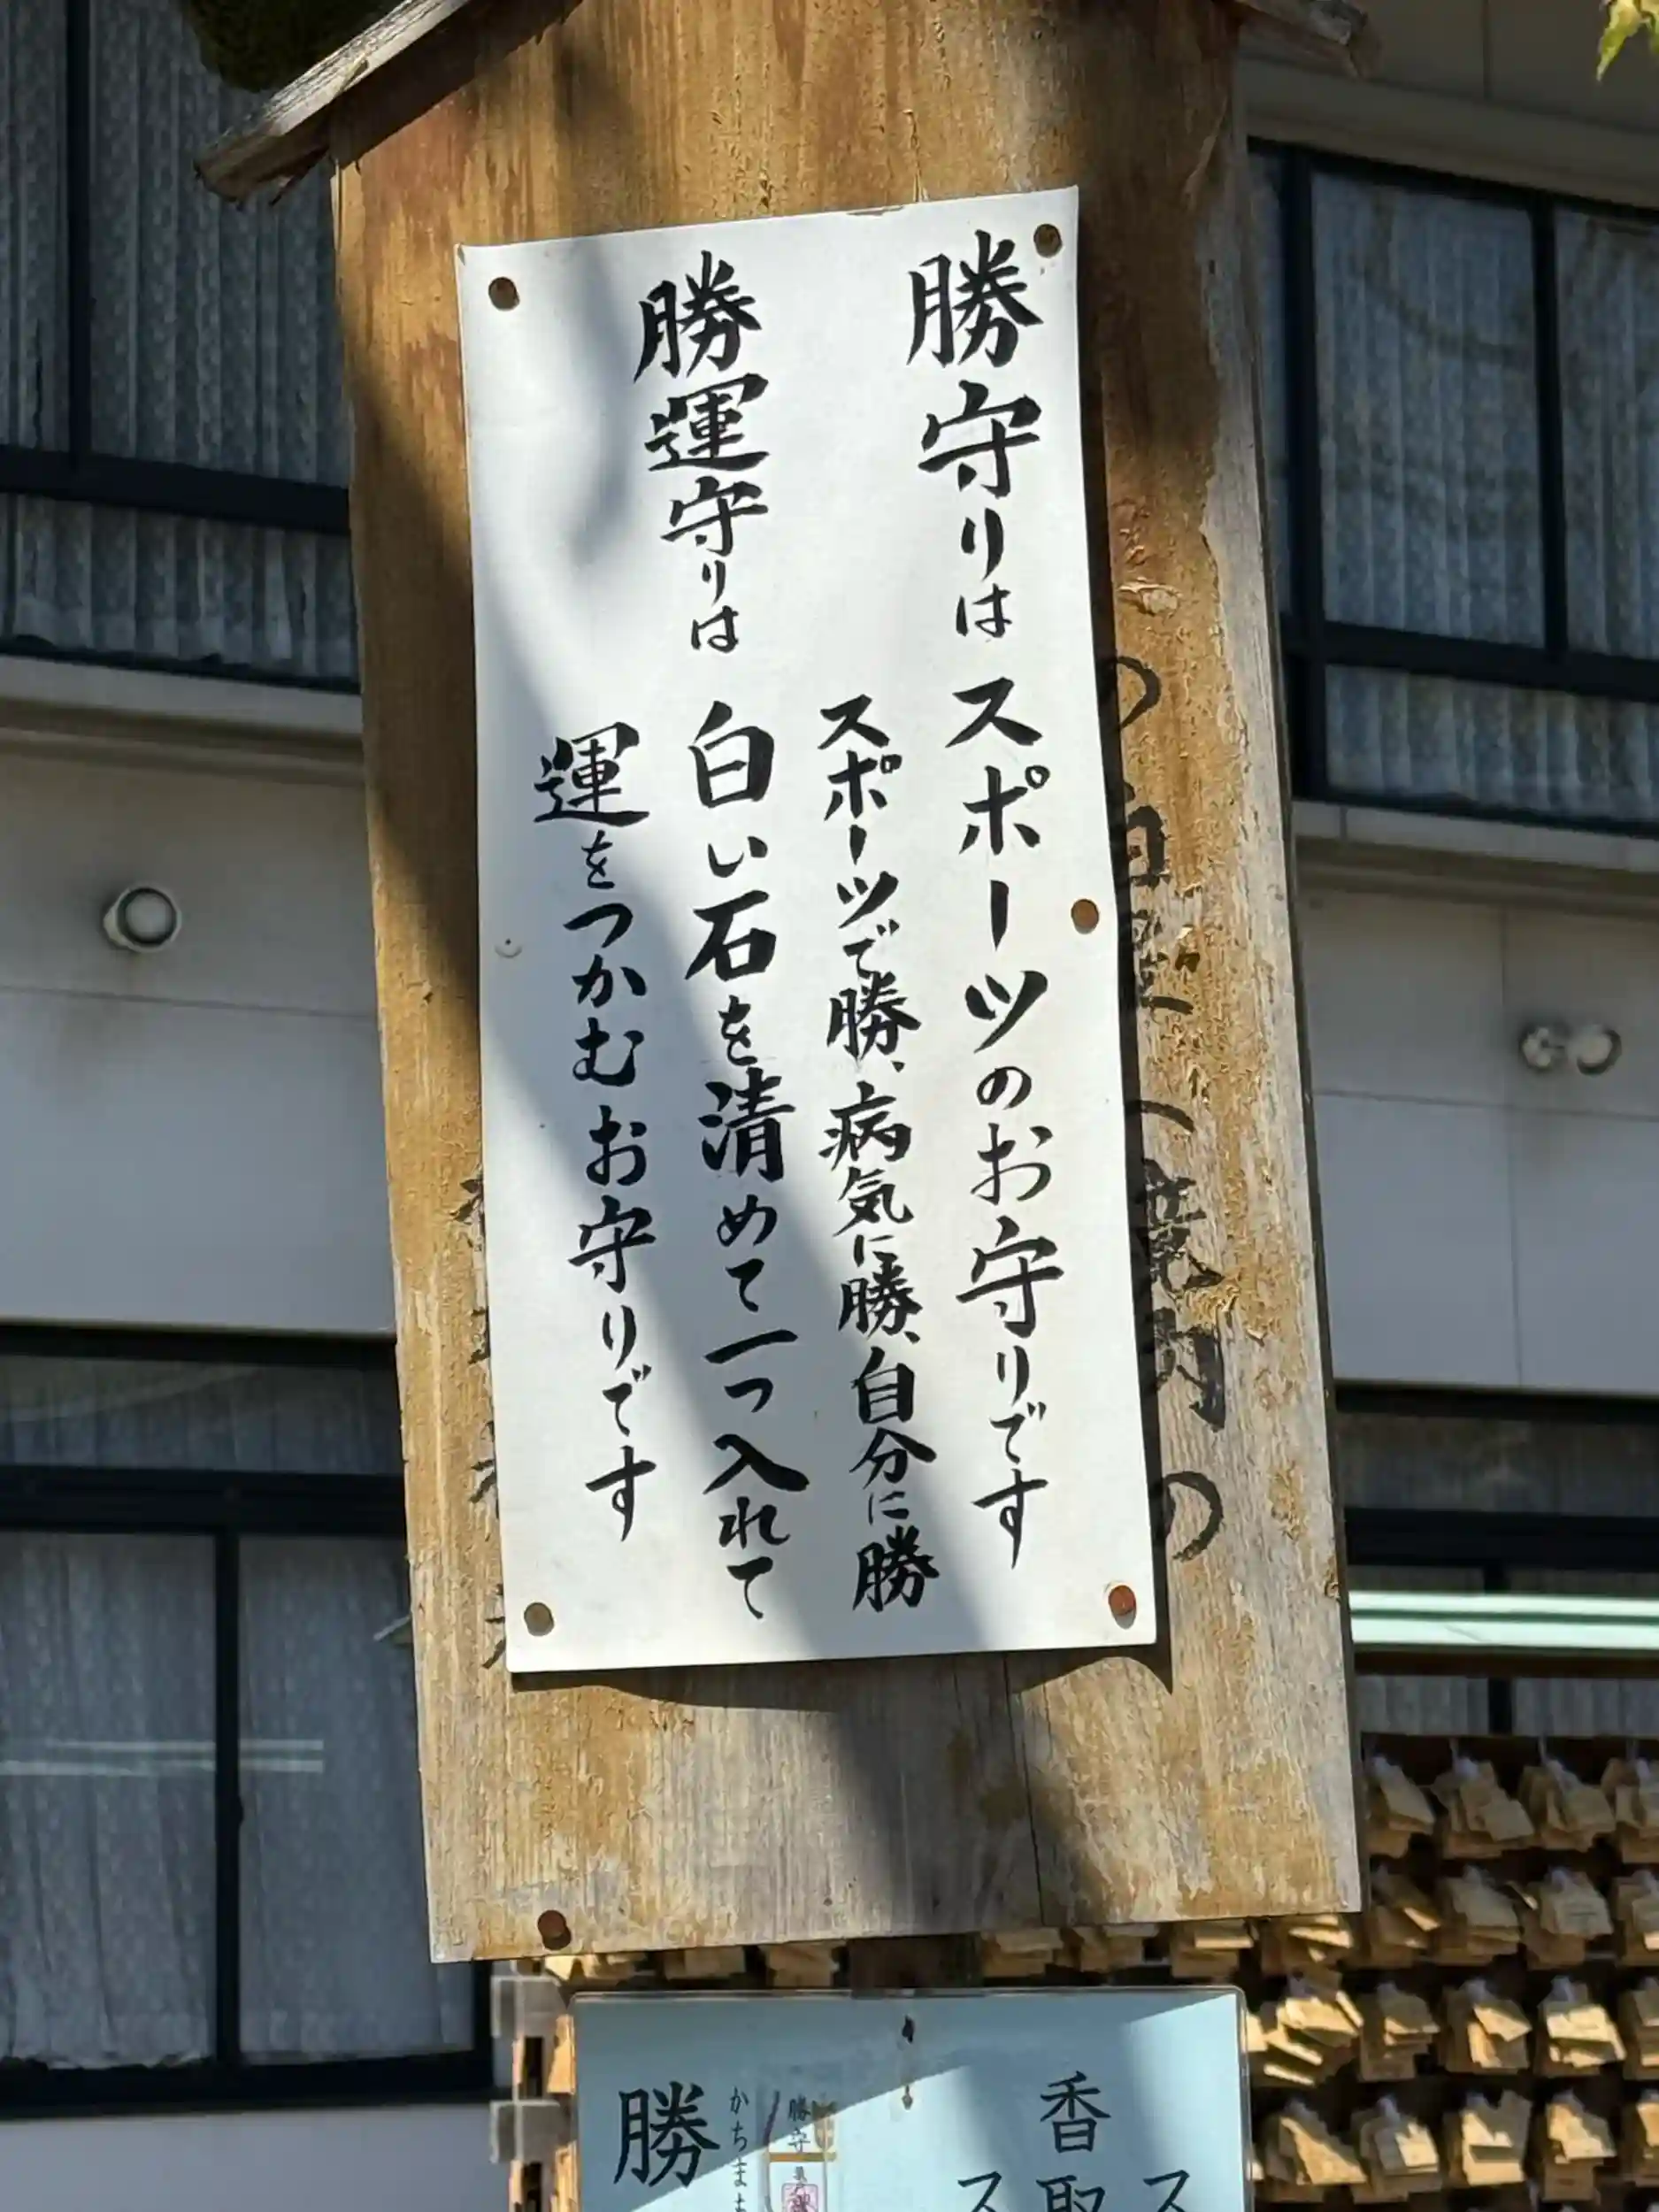 勝守りはスポーツのお守りです
スポーツで勝、病気に勝、自分に勝
勝運守りは白い石を清めて一つ入れて
運をつかむお守りです
の
の
ス
香取
ス
勝守
かちまも
勝